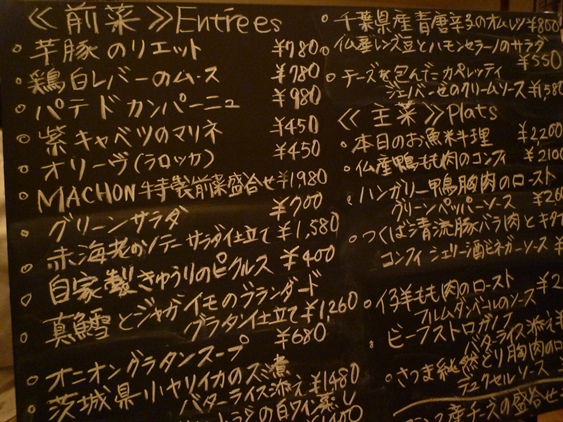 ≪前菜≫Entrées
○ 芋豚のリエット ¥780
○ 鶏白レバーのムース ¥780
○ パテドカンパーニュ ¥980
○ 紫キャベツのマリネ ¥450
○ オリーヴ(ラロッカ) ¥450
○ MACHON特製前菜盛合せ ¥1,980
○ グリーンサラダ ¥700
○ 赤海老のソテーサラダ仕立て ¥1,580
○ 自家製きゅうりのピクルス ¥400
○ 真鱈とジャガイモのブランダード
グラタン仕立て ¥1,260
○ オニオングラタンスープ ¥680
○ 茨城県小ヤリイカのスミ煮
バターライス添え ¥1480
○ 千葉県産青唐辛子のオムレツ ¥800
○ 仏産レンズ豆とハモンセラーノのサラダ
¥550
○ チーズを包んだカペレッティ
ジェノベーゼのクリームソース ¥1,580
≪主菜≫Plats
○ 本日のお魚料理 ¥2,200
○ 仏産鴨もも肉のコンフィ ¥2,100
○ ハンガリー鴨胸肉のロースト
グリーンペッパーソース ¥260
○ つくば清流豚バラ肉と
コンフィ シェリー酒ビネガーソース ¥
○ 仔羊もも肉のロースト ¥2
フルムダンベールのソース
○ ビーフストロガノフ
バターライス添え ¥
○ さつま純然どり胸肉のロ
デュクセルソース
産チーズの盛合せ